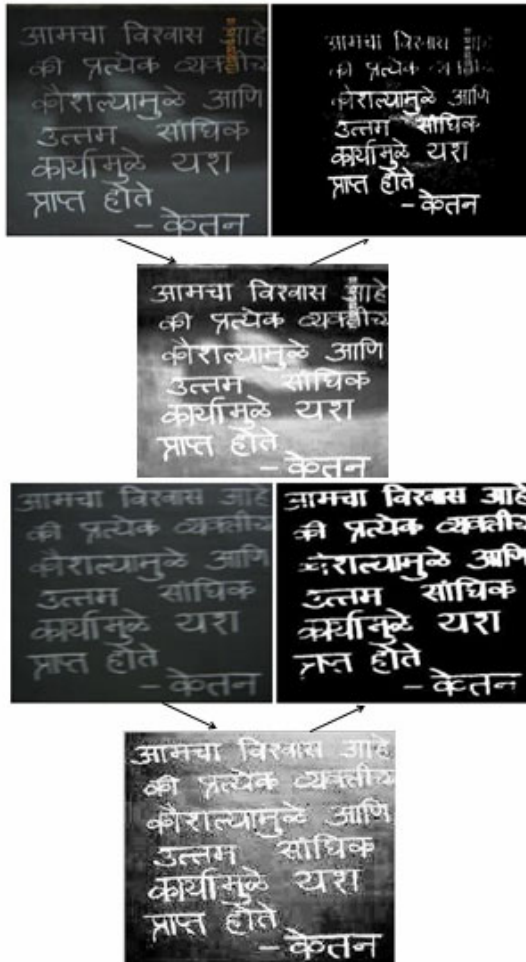 आमचा विश्वास आहे
की प्रत्येक व्यक्तीच
कौशल्यामुळे आणि
उत्तम सांघिक
कार्यामुळे यश
प्राप्त होते
- केतन
आमचा विश्वास आहे
की प्रत्येक व्यक्तीच
कौशल्यामुळे आणि
उत्तम सांघिक
कार्यामुळे यश
प्राप्त होते
- केतन
आमचा विश्वास आहे
की प्रत्येक व्यक्तीच
कौशल्यामुळे आणि
उत्तम सांघिक
कार्यामुळे यश
प्राप्त होते
- केतन
आमचा विश्वास आहे
की प्रत्येक व्यक्तीच
कौशल्यामुळे आणि
उत्तम सांघिक
कार्यामुळे यश
प्राप्त होते
- केतन
आमचा विश्वास आहे
की प्रत्येक व्यक्तीच
कौशल्यामुळे आणि
उत्तम सांघिक
कार्यामुळे यश
प्राप्त होते
- केतन
आमचा विश्वास आहे
की प्रत्येक व्यक्तीच
कौशल्यामुळे आणि
उत्तम सांघिक
कार्यामुळे यश
प्राप्त होते
- केतन